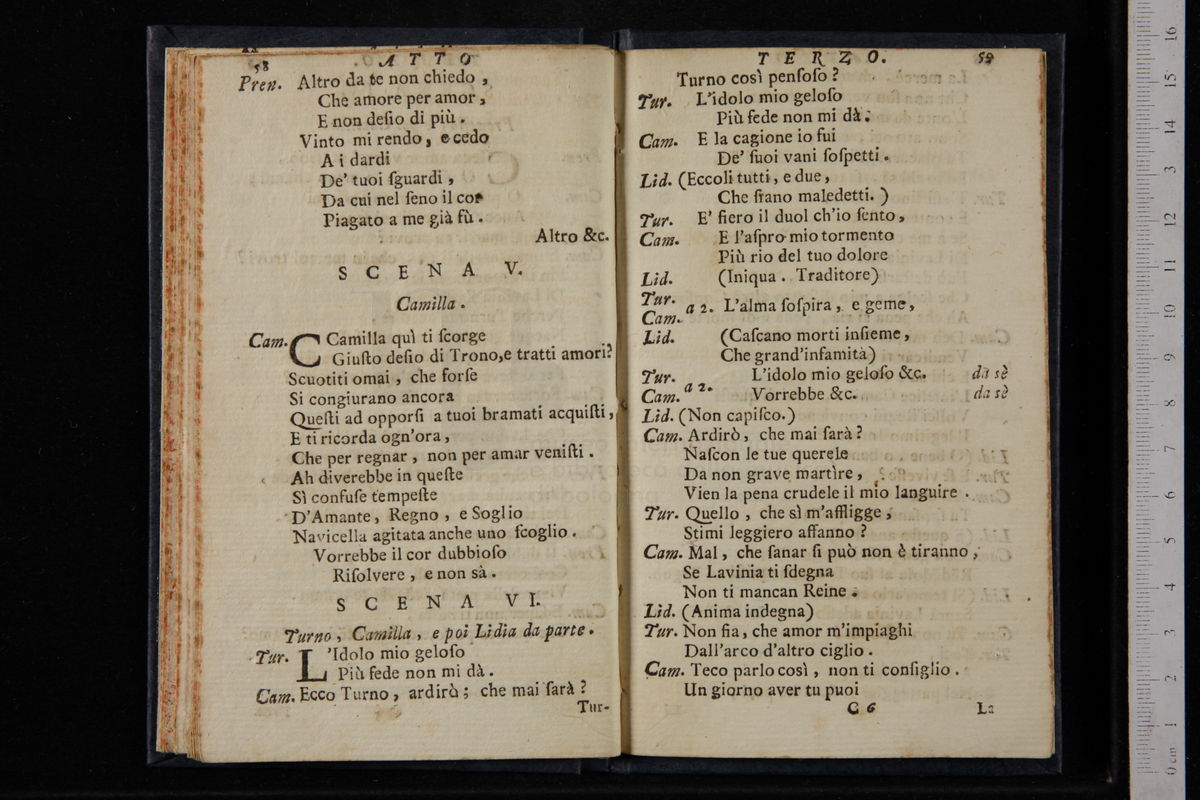 58
ATTO
Pren. Altro da te non chiedo,
Che amore per amor,
E non deſio di più.
Vinto mi rendo, e cedo
A i dardi
De' tuoi ſguardi,
Da cui nel ſeno il cor
Piagato a me già fù.
Altro &c.
SCENA V.
Camilla.
Cam. CCamilla quì ti ſcorge
Giuſto deſio di Trono,e tratti amori?
Scuotiti omai, che forſe
Si congiurano ancora
Queſti ad opporſi a tuoi bramati acquiſti,
E ti ricorda ogn'ora,
Che per regnar, non per amar veniſti.
Ah diverebbe in queſte
Sì confuſe tempeſte
D'Amante, Regno, e Soglio
Navicella agitata anche uno ſcoglio.
Vorrebbe il cor dubbioſo
Riſolvere, e non sà.
SCENA VI.
Turno, Camilla, e poi Lidia da parte.
Tur. L'Idolo mio geloſo
Più fede non mi dà.
Cam. Ecco Turno, ardirò; che mai ſarà?
Tur-
TERZO.
59
Turno così penſoſo?
Tur. L'idolo mio geloſo
Più fede non mi dà.
Cam. E la cagione io fui
De' ſuoi vani ſoſpetti.
Lid. (Eccoli tutti, e due,
Che ſiano maledetti.)
Tur. E' fiero il duol ch'io ſento,
Cam. E l'aſpro mio tormento
Più rio del tuo dolore
Lid. (Iniqua. Traditore)
Tur. Cam. a 2. L'alma ſoſpira, e geme,
Lid. (Caſcano morti inſieme,
Che grand'infamità)
Tur. L'idolo mio geloſo &c. da sè
a 2.
Cam. Vorrebbe &c. da sè
Lid. (Non capiſco.)
Cam. Ardirò, che mai ſarà?
Naſcon le tue querele
Da non grave martìre,
Vien la pena crudele il mio languire.
Tur. Quello, che sì m'affligge,
Stimi leggiero affanno?
Cam. Mal, che ſanar ſi può non è tiranno,
Se Lavinia ti ſdegna
Non ti mancan Reine.
Lid. (Anima indegna)
Tur. Non fia, che amor m'impiaghi
Dall'arco d'altro ciglio.
Cam. Teco parlo così, non ti conſiglio.
Un giorno aver tu puoi
C 6
La
0 cm 1 2 3 4 5 6 7 8 9 10 11 12 13 14 15 16